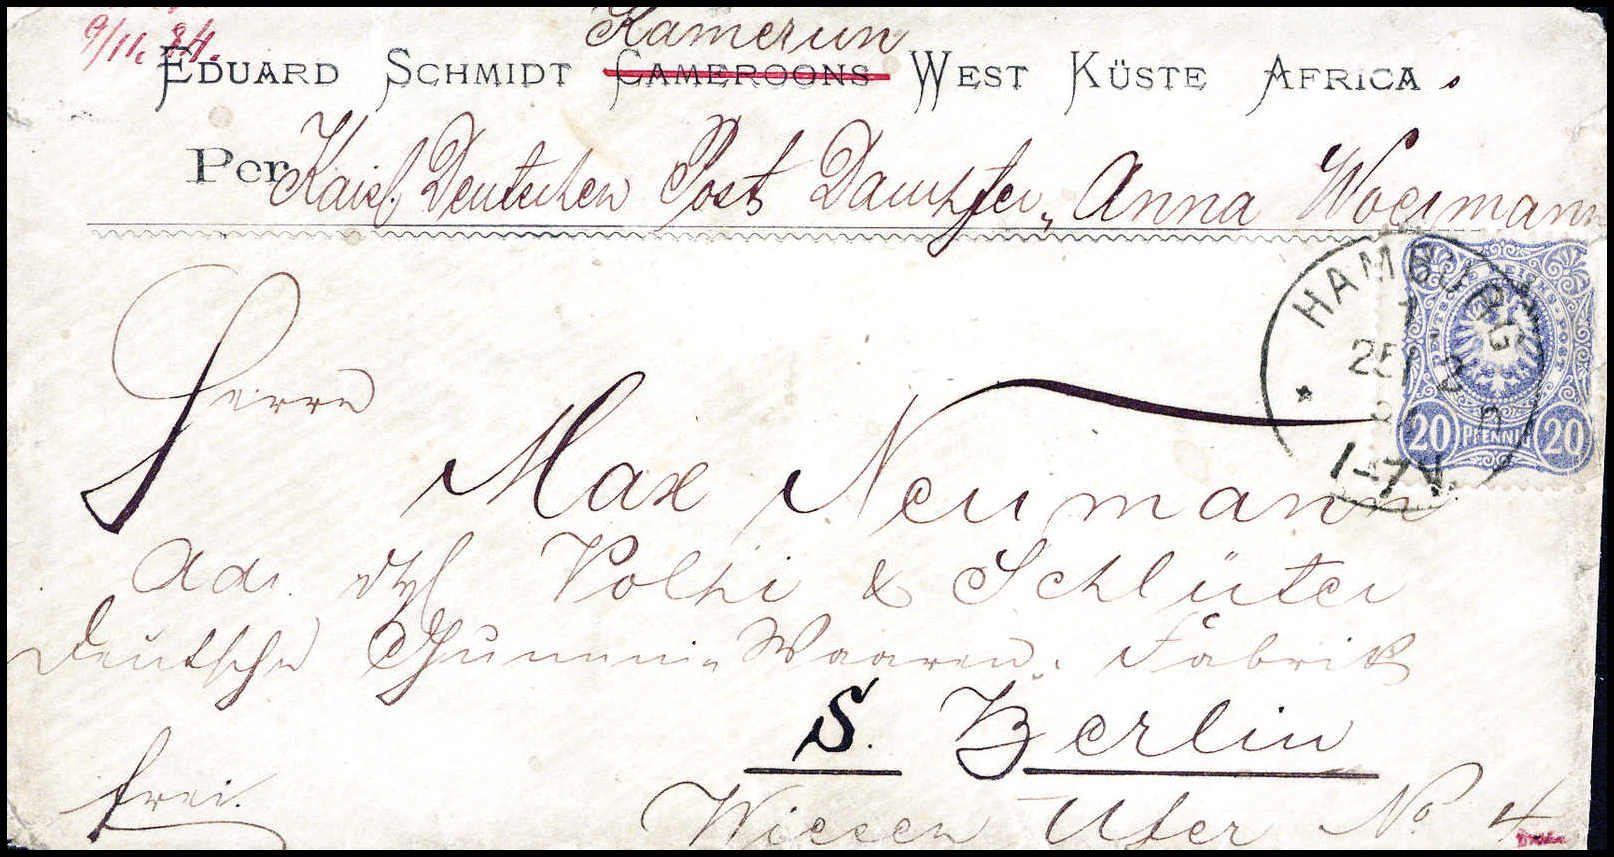 Kamerun
9/11. 84.
EDUARD SCHMIDT CAMEROONS WEST KÜSTE AFRICA
Per Kaisl. Deutschen Post Dampfer „Anna Woermann
HAMBURG
1
DEUTSCHE REICHS-POST
20 PFENNIG 20
Herrn
Max Neumann
Adr. Volpi & Schlüter
Deutsche Gummi-Waaren-Fabrik
S. Berlin
frei.
Wiesen Ufer No 4